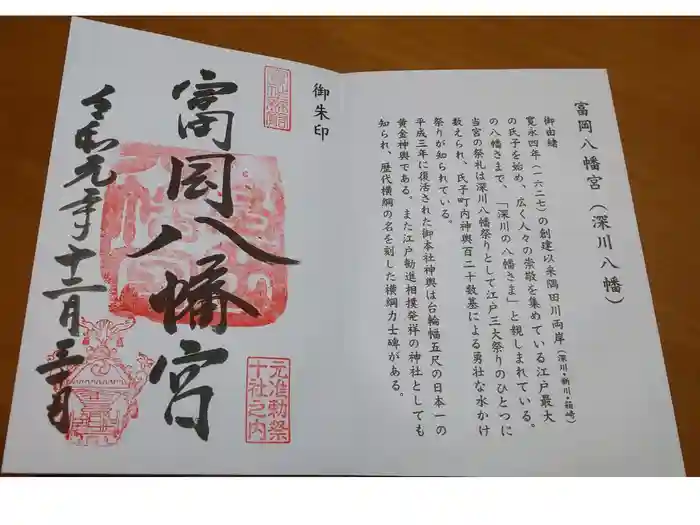 富岡八幡宮（深川八幡）
御由緒
寛永四年（一六二七）の創建以来隅田川両岸（深川・新川・箱崎）
の氏子を始め、広く人々の崇敬を集めている江戸最大
の八幡さまで、「深川の八幡さま」と親しまれている。
当宮の祭礼は深川八幡祭りとして江戸三大祭りのひとつに
数えられ、氏子町内神輿百二十数基による勇壮な水かけ
祭りが知られている。
平成三年に復活された御本社神輿は台輪幅五尺の日本一の
黄金神輿である。また江戸勧進相撲発祥の神社としても
知られ、歴代横綱の名を刻した横綱力士碑がある。
御朱印
富岡八幡宮
元准勅祭
十社之内
令和元年十二月三十日